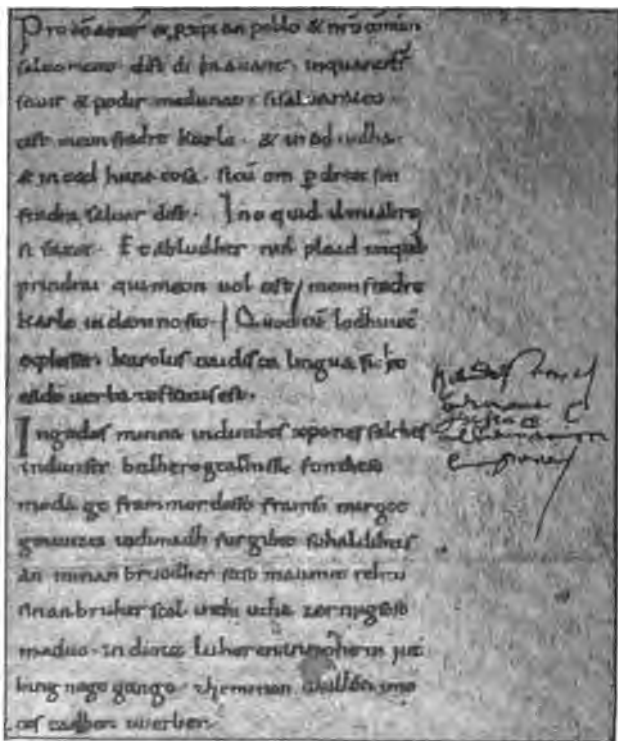 Pro dõ amur & p xpian poblo & nrõ cõmun
saluament. dist di en auant. inquantdš
sauir & podir medunat. sisaluaraieo.
cist meon fradre Karlo. & in ad iudha.
& in cad huna cosa. sicũ om p dreit son
fradra saluar dist. Ino quid il mialtre
si faz&. Et abludher nul plaid nũquã
prindrai qui meon uol cist meon fradre
Karle in damno sit. Quod cũ lodhuuic
explesset. karolus teudisca lingua sic
eadẽ uerba testatus est.
Ingodes minna indinthes xpanes folches
indunser bedhero gealtnissi. fonthese
moda ge frammordesso framso mirgot
geuuizci indimadh furgibit sohaldihtes
an minan bruodher soso manmit rehtu
sinan bruher scal inthi utha zermigsoso
maduo. indimit luheren in nohein iut
hing nege gango. zheminan uuillon imo
ces cadhen uuerhen.